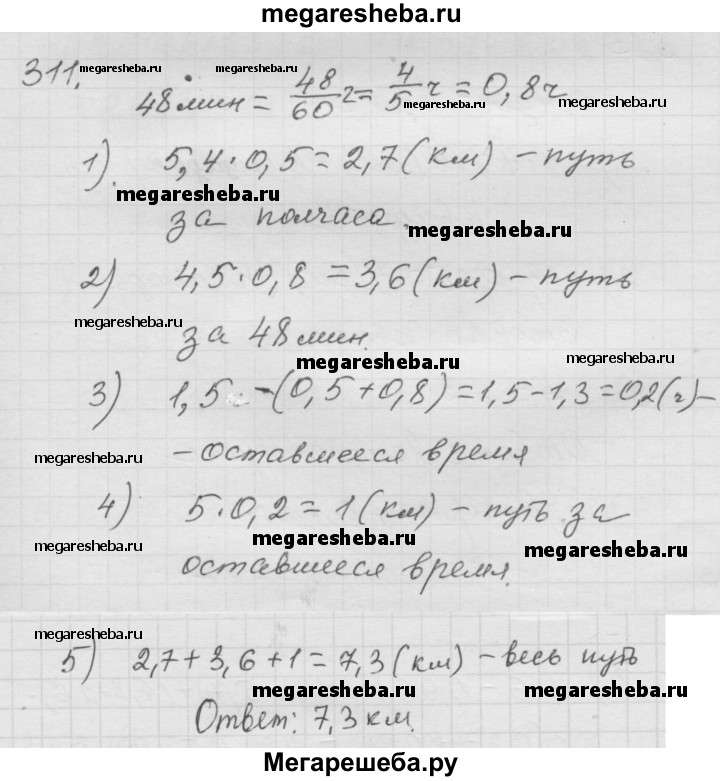 megaresheba.ru
311. megaresheba.ru megaresheba.ru
48 мин = 48/60 ч = 4/5 ч = 0,8 ч
megaresheba.ru megaresheba.ru
1) 5,4·0,5=2,7 (км) – путь
megaresheba.ru
за полчаса.
megaresheba.ru
2) 4,5·0,8=3,6 (км) – путь
megaresheba.ru
за 48 мин.
megaresheba.ru megaresheba.ru
3) 1,5 -(0,5+0,8)=1,5-1,3=0,2(ч)–
megaresheba.ru – оставшееся время
megaresheba.ru
4) 5·0,2=1 (км) – путь за
megaresheba.ru megaresheba.ru
оставшееся время.
megaresheba.ru
5) 2,7+3,6+1=7,3 (км) – весь путь
megaresheba.ru megaresheba.ru
Ответ: 7,3 км.
Мегарешеба.ру